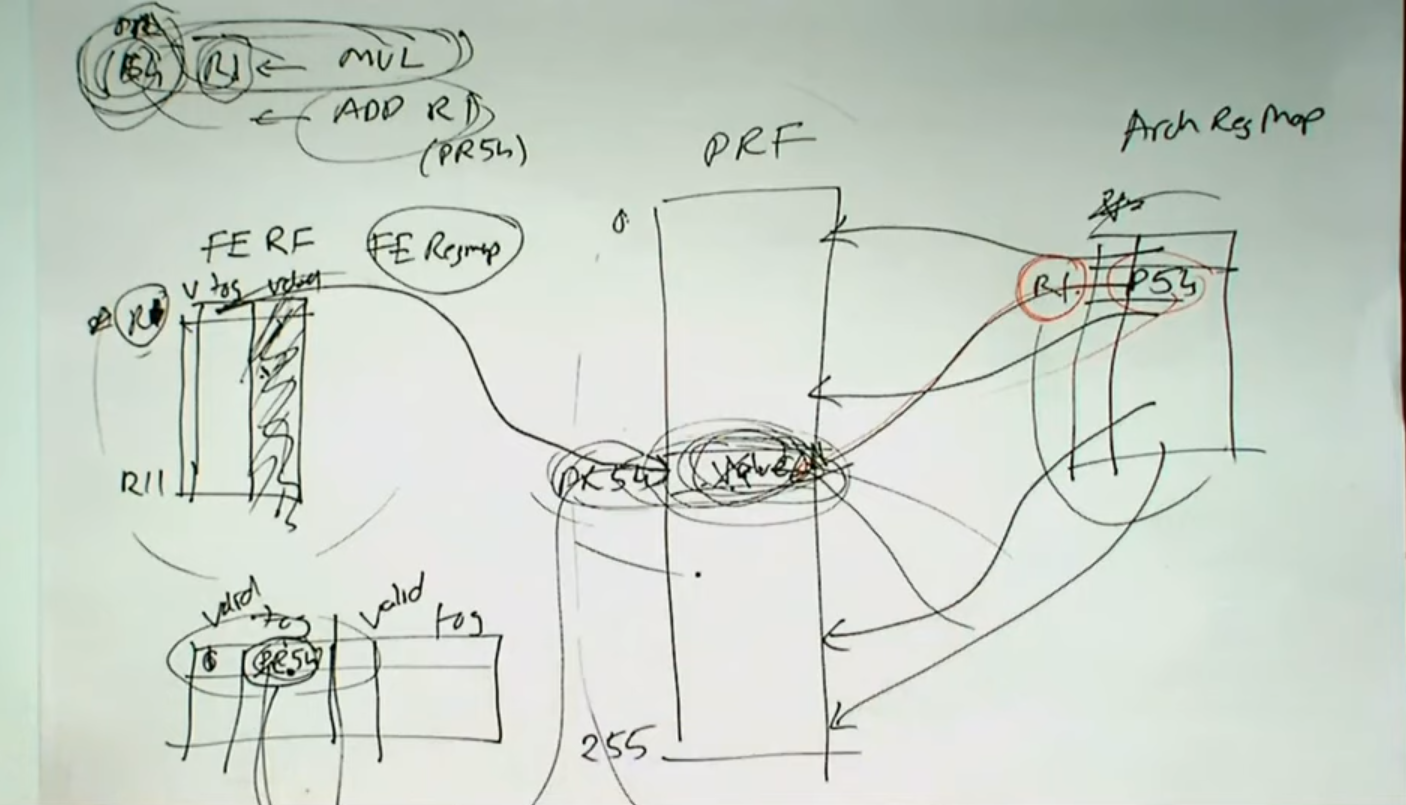 P54 R1 ← MUL
← ADD R1
(PR54)
PRF
Arch Reg Map
FE RF
FE Regmap
V tag value
R1
R11
0
R1
P54
PR54
value
valid tag valid tag
0 PR54
255